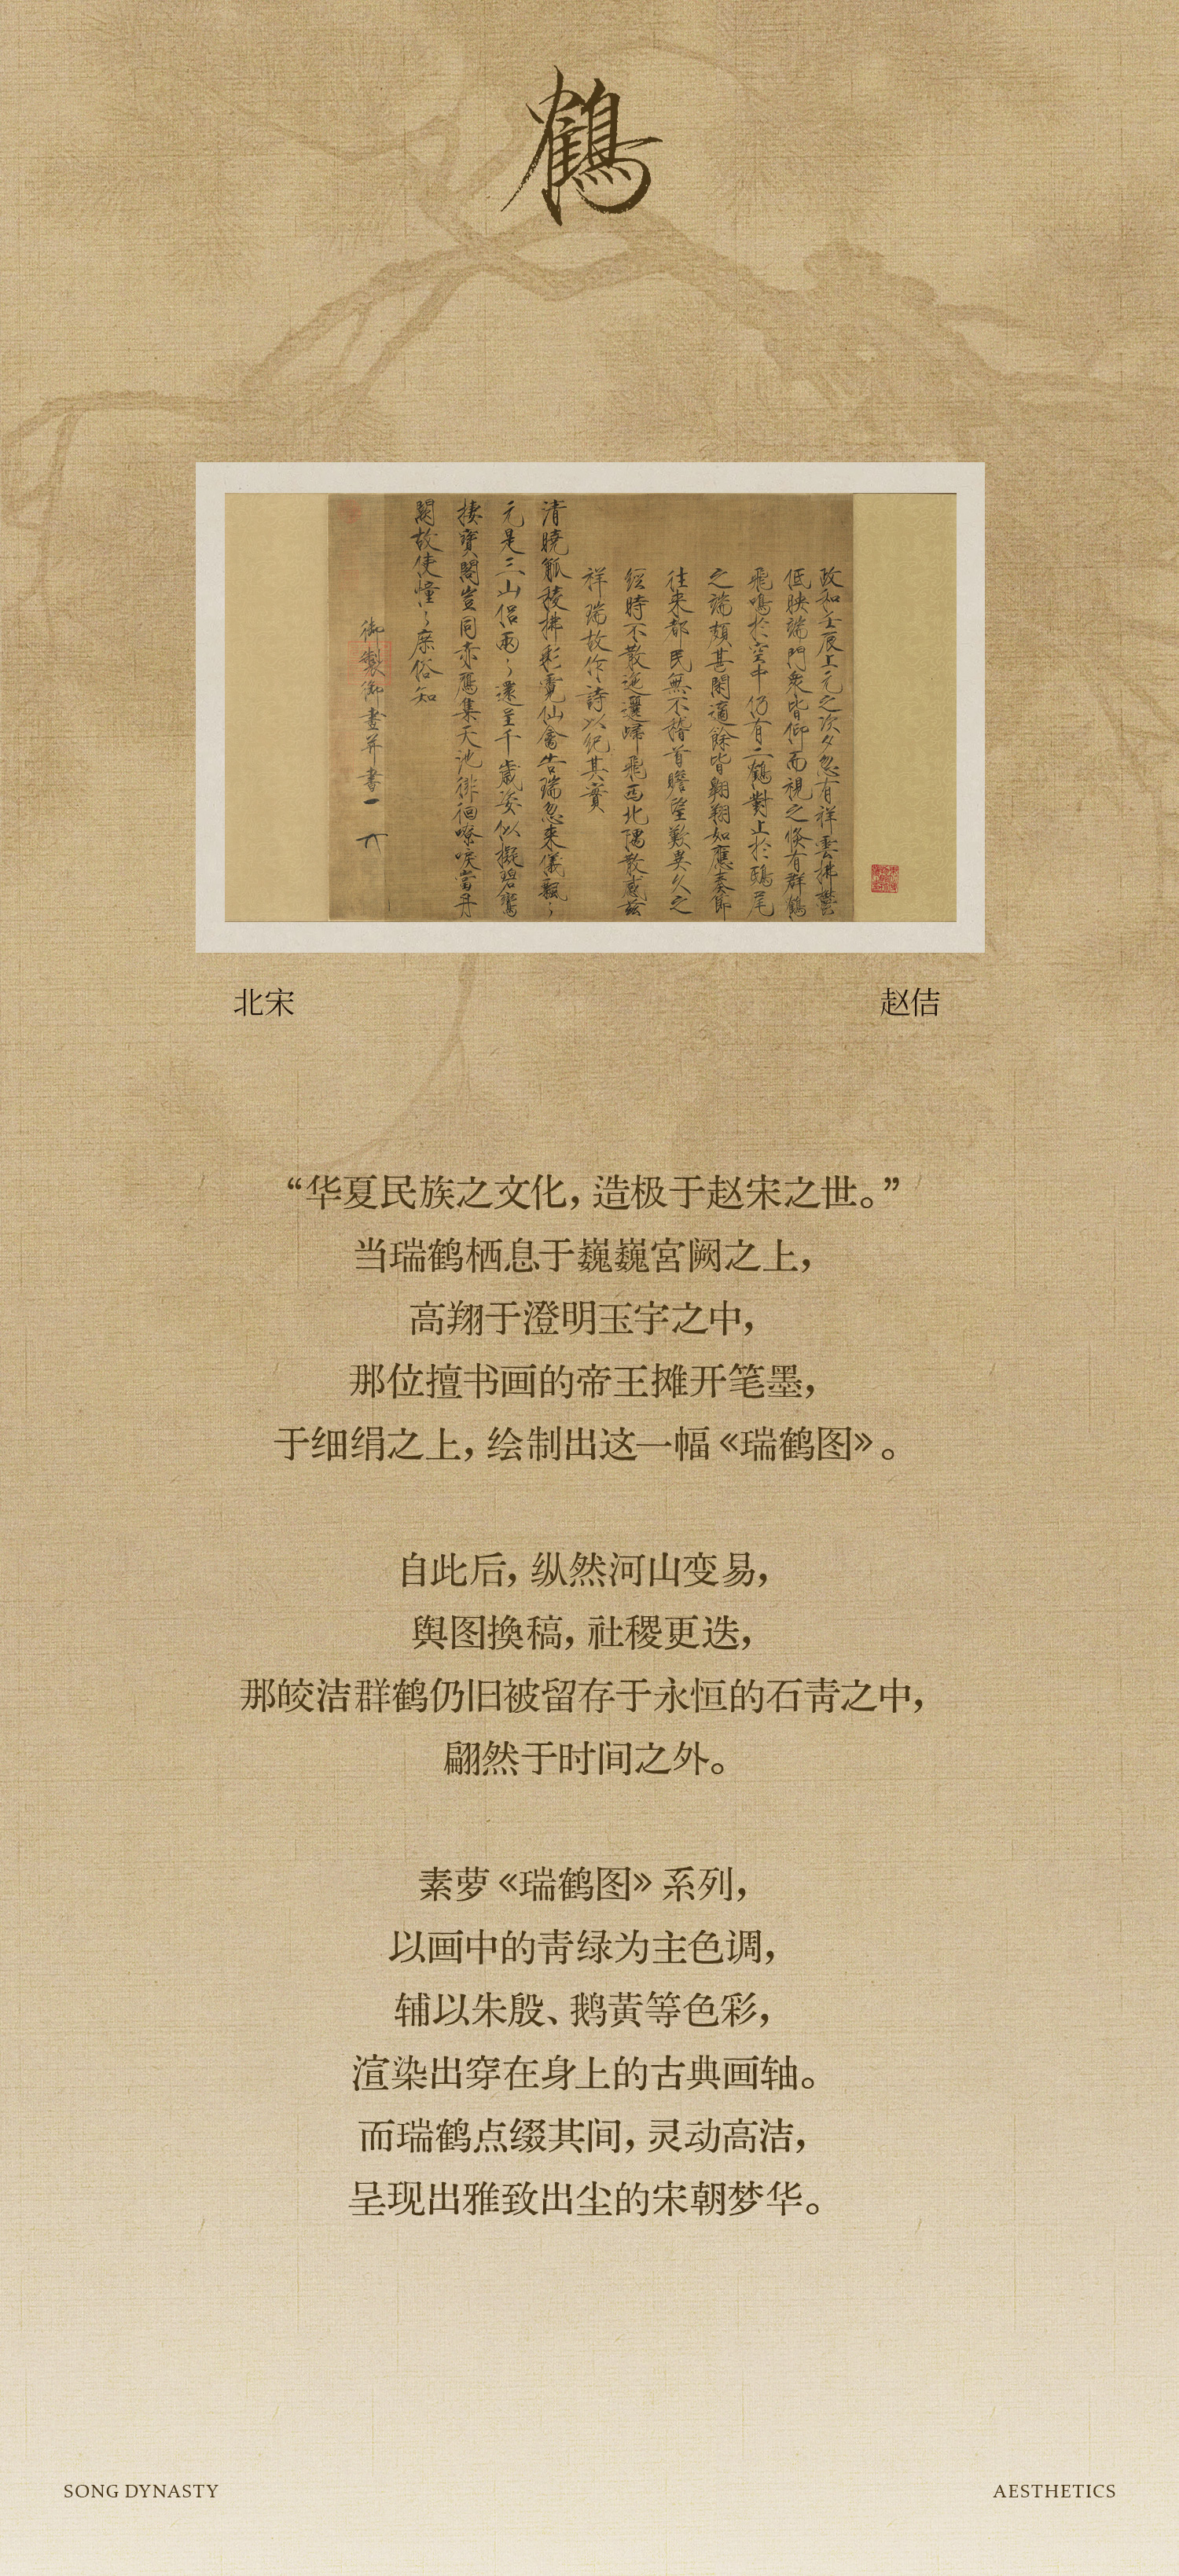 鶴
政和壬辰上元之次夕忽有祥雲拂鬱
低映端門衆皆仰而視之倏有群鶴
飛鳴於空中仍有二鶴對止於鴟尾
之端頗甚閑適餘皆翱翔如應奏節
往來都民無不稽首瞻望歎異久之
經時不散迤邐歸飛西北隅散感茲
祥瑞故作詩以紀其實
清曉觚稜拂彩霓仙禽告瑞忽來儀飄〻
元是三山侶兩〻還呈千歲姿似擬碧鸞
棲寶閣豈同赤鴈集天池徘徊嘹唳當丹
闕故使憧〻庶俗知
御製御畫并書
北宋
赵佶
“华夏民族之文化，造极于赵宋之世。”
当瑞鹤栖息于巍巍宫阙之上，
高翔于澄明玉宇之中，
那位擅书画的帝王摊开笔墨，
于细绢之上，绘制出这一幅《瑞鹤图》。
自此后，纵然河山变易，
舆图换稿，社稷更迭，
那皎洁群鹤仍旧被留存于永恒的石青之中，
翩然于时间之外。
素萝《瑞鹤图》系列，
以画中的青绿为主色调，
辅以朱殷、鹅黄等色彩，
渲染出穿在身上的古典画轴。
而瑞鹤点缀其间，灵动高洁，
呈现出雅致出尘的宋朝梦华。
SONG DYNASTY
AESTHETICS